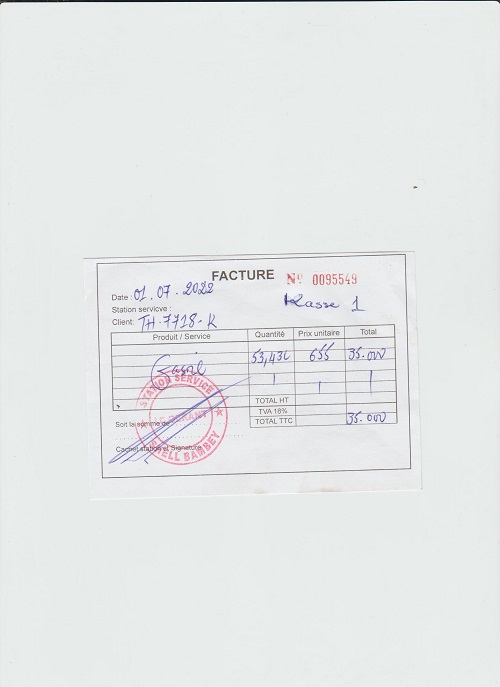 FACTURE
Nº 0095549
Date : 01.07.2022
Kasse 1
Station servicve :
Client: TH-7718-K
Produit / Service Quantité Prix unitaire Total
Gasoil 53,43L 655 35.000
TOTAL HT
TVA 18%
TOTAL TTC 35.000
Soit la somme de
Cachet station et Signature
STATION SERVICE
LE GERANT
SHELL BAMBEY